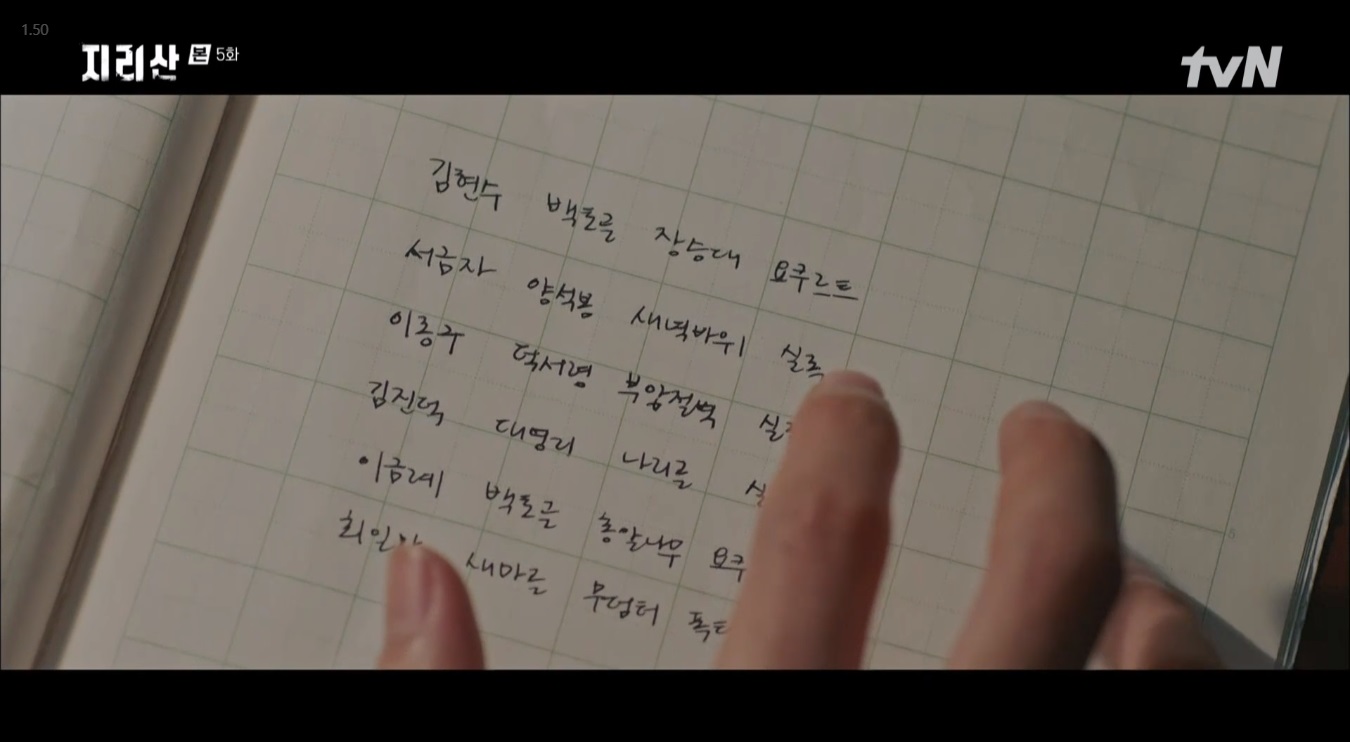 1.50
지리산 본 5화
tvN
김현수 백토골 장승대 요쿠르트
서금자 양석봉 새녁바위 실족
이종구 덕서령 부암절벽
김진덕 대영리 나리골
이금례 백토골 총알나무
새마골 무덤터